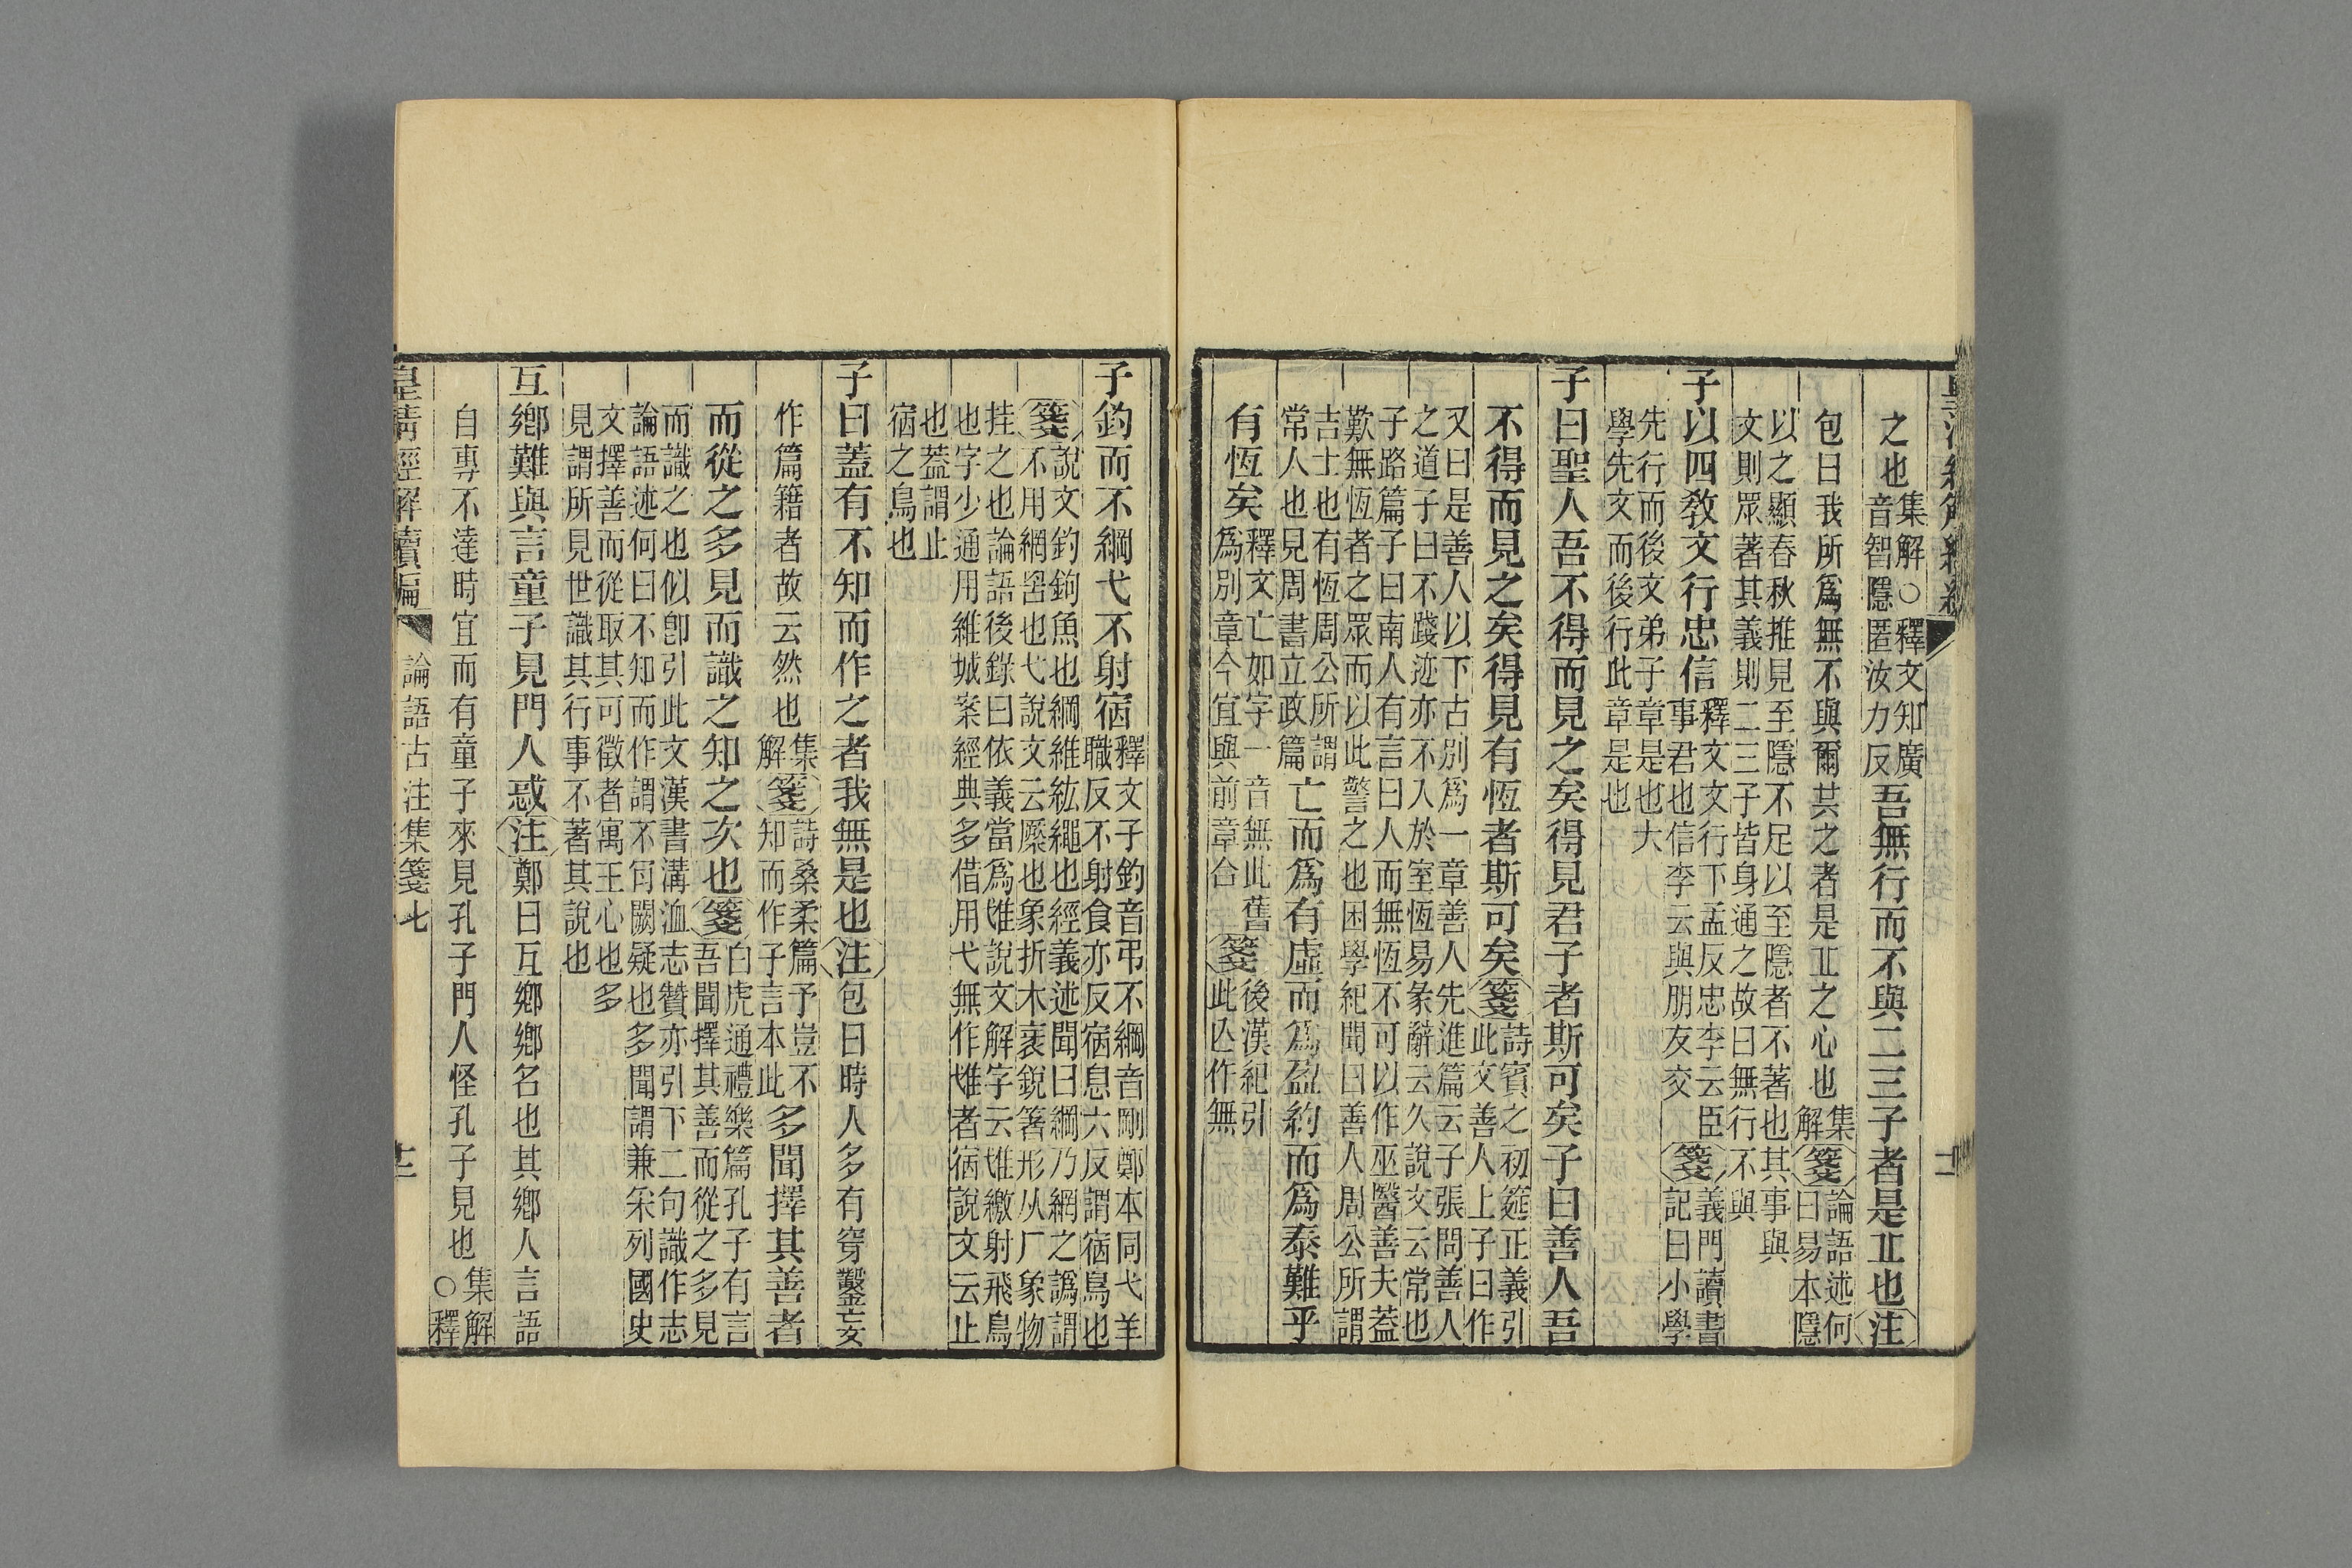 之也集解○釋文知廣
音智隱匿汝力反吾無行而不與二三子者是𠀉也注
包曰我所爲無不與爾共之者是𠀉之心也集解箋論語述何
曰易本隱
以之顯春秋推見至隱不足以至隱者不著也其事與
文則眾著其義則二三子皆身通之故曰無行不與
子以四教文行忠信釋文文行下孟反忠李云臣
事君也信李云與朋友交箋義門讀書
記曰小學
先行而後文弟子章是也大
學先文而後行此章是也
子曰聖人吾不得而見之矣得見君子者斯可矣子曰善人吾
不得而見之矣得見有恆者斯可矣箋詩賓之初筵正義引
此文善人上子曰作
又曰是善人以下古別爲一章善人先進篇云子張問善人
之道子曰不踐迹亦不入於室恆易彖辭云久說文云常也
子路篇子曰南人有言曰人而無恆不可以作巫醫善夫葢
歎無恆者之眾而以此警之也困學紀聞曰善人周公所謂
吉士也有恆周公所謂
常人也見周書立政篇亡而爲有虛而爲盈約而爲泰難乎
有恆矣釋文亡如字一音無此舊
爲別章今宜與前章合箋後漢紀引
此亾作無
子釣而不綱弋不射宿釋文子釣音弔不綱音剛鄭本同弋羊
職反不射食亦反宿息六反謂宿鳥也
箋說文釣鉤魚也綱維紘繩也經義述聞曰綱乃網之譌謂
不用網罟也弋說文云橜也象折木衺銳著形从厂象物
挂之也論語後錄曰依義當爲隿說文解字云隿繳射飛鳥
也字少通用維城案經典多借用弋無作隿者宿說文云止
也葢謂止
宿之鳥也
子曰蓋有不知而作之者我無是也注包曰時人多有穿鑿妄
作篇籍者故云然也集解箋詩桑柔篇予豈不
知而作子言本此多聞擇其善者
而從之多見而識之知之次也箋白虎通禮樂篇孔子有言
吾聞擇其善而從之多見
而識之也似卽引此文漢書溝洫志贊亦引下二句識作志
論語述何曰不知而作謂不肎闕疑也多聞謂兼采列國史
文擇善而從取其可徵者寓王心也多
見謂所見世識其行事不著其說也
互鄉難與言童子見門人惑注鄭曰互鄉鄉名也其鄉人言語
自專不達時宜而有童子來見孔子門人怪孔子見也集解
○釋
皇清經解續編 論語古注集箋七 十二